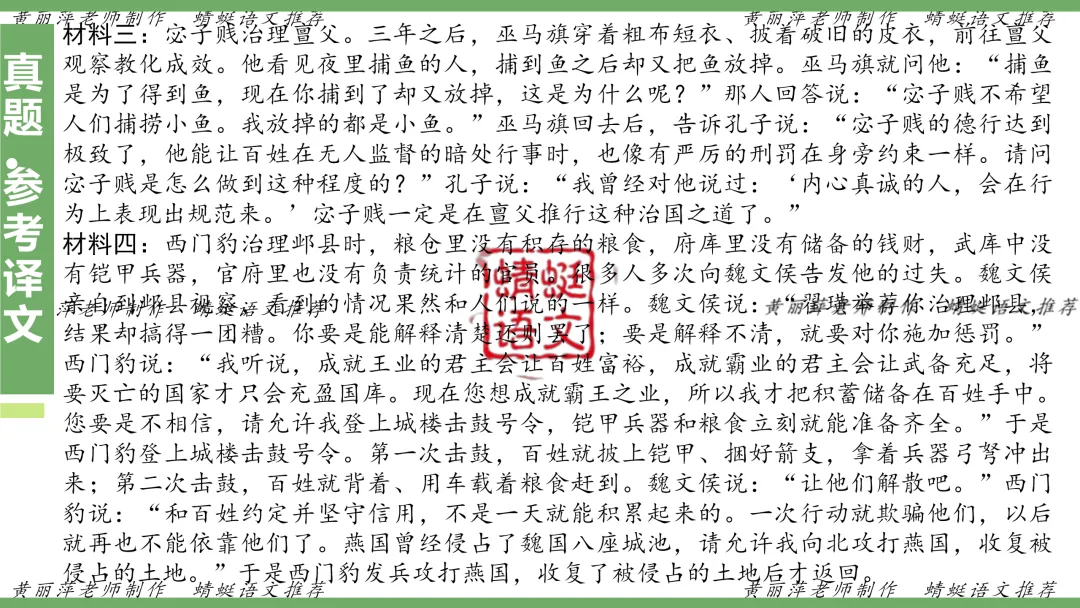 黄丽萍老师制作 蜻蜓语文推荐 黄丽萍老师制作 蜻蜓语文推荐
真题·参考译文
材料三：宓子贱治理亶父。三年之后，巫马旗穿着粗布短衣、披着破旧的皮衣，前往亶父
观察教化成效。他看见夜里捕鱼的人，捕到鱼之后却又把鱼放掉。巫马旗就问他：“捕鱼
是为了得到鱼，现在你捕到了却又放掉，这是为什么呢？”那人回答说：“宓子贱不希望
人们捕捞小鱼。我放掉的都是小鱼。”巫马旗回去后，告诉孔子说：“宓子贱的德行达到
极致了，他能让百姓在无人监督的暗处行事时，也像有严厉的刑罚在身旁约束一样。请问
宓子贱是怎么做到这种程度的？”孔子说：“我曾经对他说过：‘内心真诚的人，会在行
为上表现出规范来。’宓子贱一定是在亶父推行这种治国之道了。”
材料四：西门豹治理邺县时，粮仓里没有积存的粮食，府库里没有储备的钱财，武库中没
有铠甲兵器，官府里也没有负责统计的官员。很多人多次向魏文侯告发他的过失。魏文侯
亲自到邺县视察，看到的情况果然和人们说的一样。魏文侯说：“翟璜举荐你治理邺县，
萍老师制作 蜻蜓语文推荐 黄丽萍老师制作 蜻蜓语文推荐
结果却搞得一团糟。你要是能解释清楚还则罢了；要是解释不清，就要对你施加惩罚。”
西门豹说：“我听说，成就王业的君主会让百姓富裕，成就霸业的君主会让武备充足，将
要灭亡的国家才只会充盈国库。现在您想成就霸王之业，所以我才把积蓄储备在百姓手中。
您要是不相信，请允许我登上城楼击鼓号令，铠甲兵器和粮食立刻就能准备齐全。”于是
西门豹登上城楼击鼓号令。第一次击鼓，百姓就披上铠甲、捆好箭支，拿着兵器弓弩冲出
来；第二次击鼓，百姓就背着、用车载着粮食赶到。魏文侯说：“让他们解散吧。”西门
豹说：“和百姓约定并坚守信用，不是一天就能积累起来的。一次行动就欺骗他们，以后
就再也不能依靠他们了。燕国曾经侵占了魏国八座城池，请允许我向北攻打燕国，收复被
侵占的土地。”于是西门豹发兵攻打燕国，收复了被侵占的土地后才返回。
蜻蜓语文
黄丽萍老师制作 蜻蜓语文推荐 黄丽萍老师制作 蜻蜓语文推荐